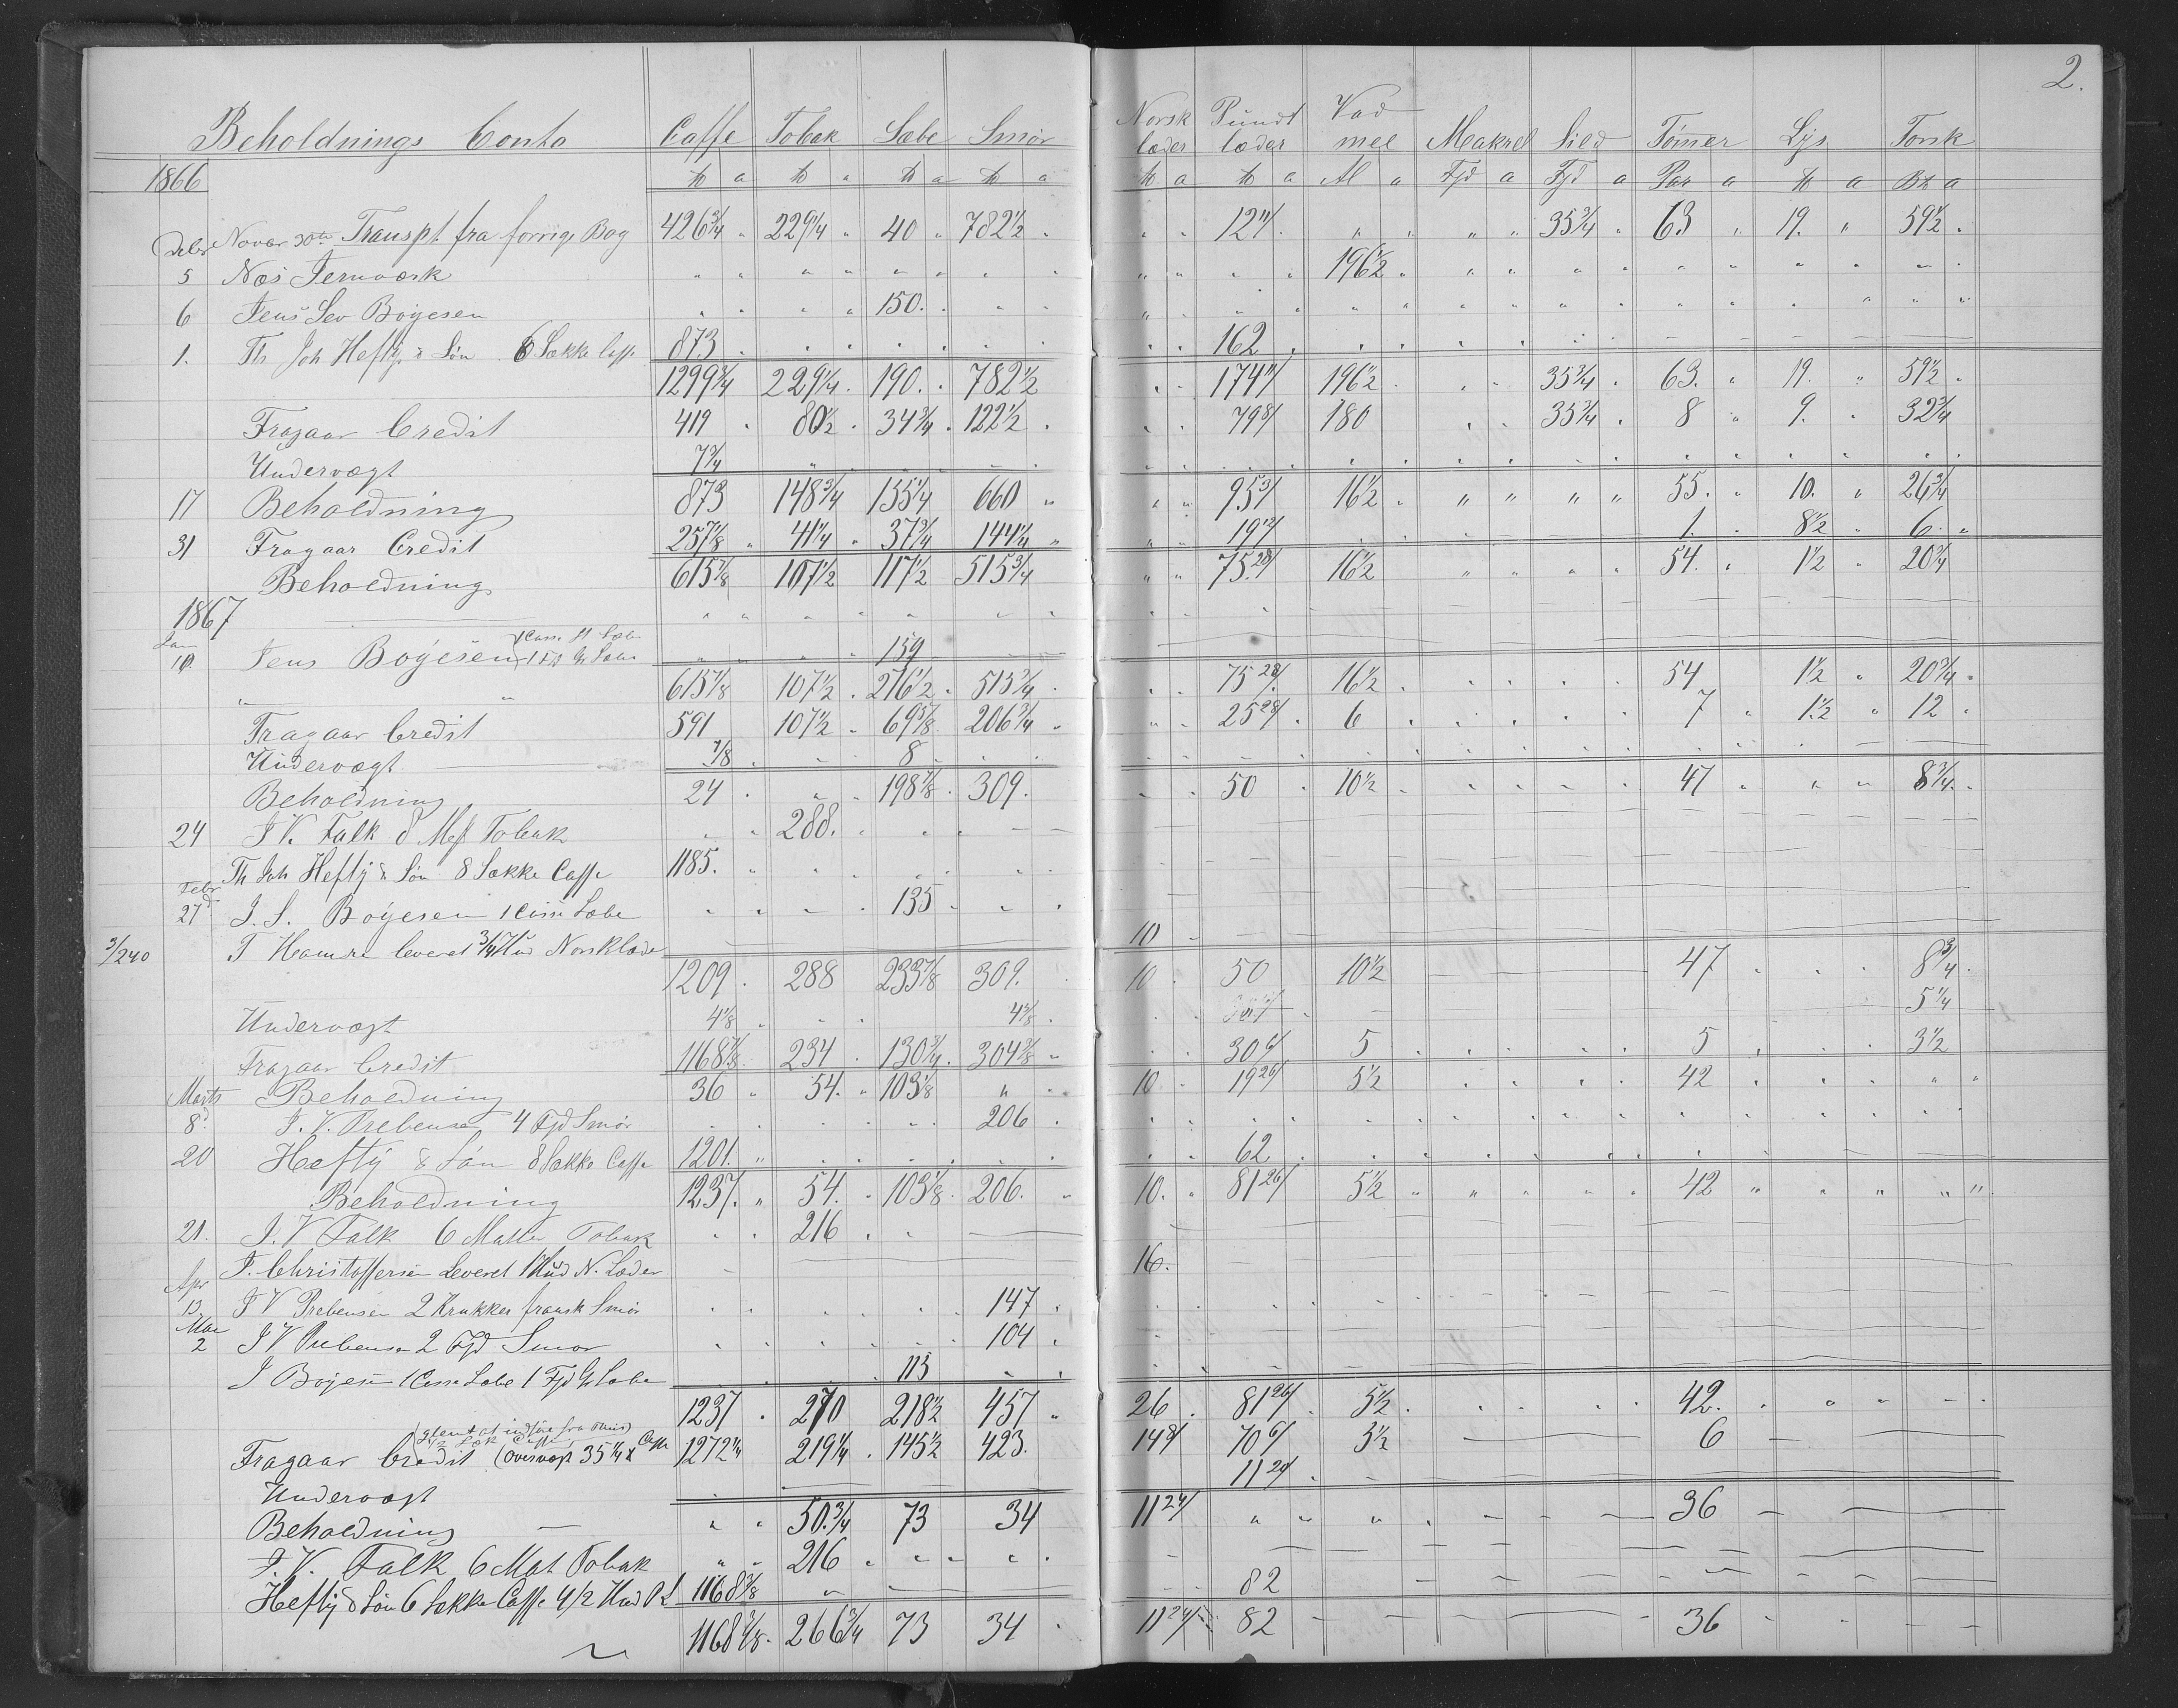 2.
Beholdnings Conto Caffe Tobak Sæbe Smör Norsk læder Pundt læder Vad mel Makrel Sild Tömmer Lÿs Torsk
1866 ℔ a ℔ " ℔ a ℔ a ℔ a ℔ a Al a Fjd a Fjd a Par a ℔ a a
Novbr 30te Transpt. fra forrige Bog 426 3/4 " 229 1/4 " 40 " 782 1/2 " " " 12 11/ " " " " 35 3/4 " 63 " 19. " 59 1/2 "
Debr 5 Næs Jernværk 196 1/2
6 Jens Sev Boÿesen 150.
1. Th Joh Heftÿe & Sön 6 Sække Caffe 873 162
1299 3/4 229 1/4 190. 782 1/2 174 11/ 196 1/2 35 3/4 63. 19. 59 1/2
Fragaar Credit 419 80 1/2 34 3/4 122 1/2 79 8/ 180 35 3/4 8 9. 32 3/4
Undervægt 7 3/4
17 Beholdning 873 148 3/4 155 1/4 660 95 3/ 16 1/2 " " " " 55. 10. 26 3/4
31 Fragaar Credit 257 1/8 41 1/4 37 3/4 144 1/4 19 12/ 1. 8 1/2 6
Beholdning 615 7/8 107 1/2 117 1/2 515 3/4 75 28/ 16 1/2 54. 1 1/2 20 3/4
1867
Jan 10. Jens Boÿesen 159
615 7/8 107 1/2 276 1/2 515 3/4 75 28/ 16 1/2 54 1 1/2 20 3/4
Fragaar Credit 591 107 1/2 69 5/8 206 3/4 25 28/ 6 7 1 1/2 12
Undervægt 7/8 8
Beholdning 24 198 7/8 309. 50 10 1/2 47 8 3/4
24 J V. Falk 8 Mtt Tobak 288.
Th Joh Heftÿe & Sön 8 Sække Caffe 1185.
Febr 27d J. S. Boÿesen 1 Casse Sæbe 135
3/240 T Hamre leveret 3/4 Hud Norsklæder 10
1209 288 233 7/8 309. 10 50 10 1/2 47 8 3/4
Undervægt 4 1/8 4 3/8 5 1/4
Fragaar Credit 1168 7/8 234 130 3/4 304 5/8 30 6/ 5 5 3 1/2
Marts Beholdning 36 54. 103 1/8 10 19 26/ 5 1/2 42
8d. J. V. Prebensen 4 Fjd Smör 206
20 Heftÿe & Sön 8 Sække Caffe 1201. 62
Beholdning 1237. 54. 103 1/8 206. 10. 81 26/ 5 1/2 42
21. J. V Falk 6 Matter Tobak 216
F. Christoffersen Leveret 1 Hud N. Læder 16.
Apr 13. J V Prebensen 2 Krukker fransk Smör 147
Mai 2 J V Prebensen 2 Fjd Smör 104
J Boÿesen 1 Casse Sæbe 1 Fjd Gr Sæbe 115
1237 270 218 1/2 457 26 81 26/ 5 1/2 42.
(glemt at indföre fra
Fragaar Credit (overvægt 35 1/4 ℔ Caffe 1272 1/4 219 1/4 145 1/2 423. 14 8/ 70 6/ 5 1/2 6
Undervægt 11 20/
Beholdning 50. 3/4 73 34 11 24/ 36
J. V. Falk 6 Mat Tobak 216
Heftÿe & Sön 6 Sække Caffe 4/2 Hud P L 1168 3/8 82
1168 3/8 266 3/4 73 34 11 24/ 82 36